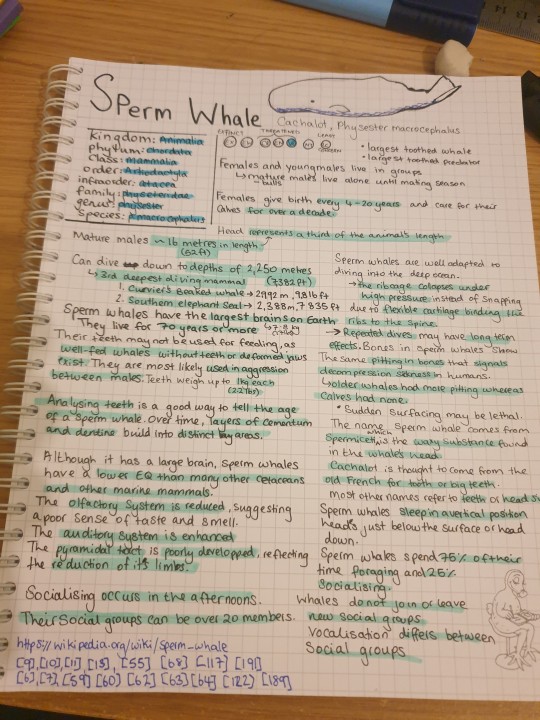 Sperm Whale
Cachalot, Physester macrocephalus
Kingdom: Animalia
phylum: Chordata
Class: Mammalia
Order: Artiodactyla
infraorder:
family: Physeteridae
genus: physeter
Species: P. macrocephalus
EXTINCT THREATENED LEAST CONCERN
• largest toothed whale
• largest toothed predator
Females and young males live in groups
↳ mature males live alone until mating season
bulls
Females give birth every 4-20 years and care for their
Calves for over a decade.
Head represents a third of the animal's length
Mature males ~16 metres in length
(52ft)
Can dive down to depths of 2,250 metres
↳ 3rd deepest diving mammal (7382 ft)
1. Cuvier's Beaked whale → 2992m, 9,816ft
2. Southern elephant Seal → 2,388m, 7,835ft
Sperm whales have the largest brains on Earth
They live for 70 years or more
Their teeth may not be used for feeding, as
well-fed whales without teeth or deformed jaws
exist. They are most likely used in aggression
between males. Teeth weigh up to 1kg each
(2.2 lbs)
Analysing teeth is a good way to tell the age
of a sperm whale. Over time, layers of cementum
and dentine build into distinct areas.
Although it has a large brain, sperm whales
have a lower EQ than many other cetaceans
and other marine mammals.
The olfactory System is reduced, suggesting
a poor sense of taste and smell.
The auditory system is enhanced
The pyramidal tract is poorly developped, reflecting
the reduction of its limbs.
Socialising occurs in the afternoons.
Their Social groups can be over 20 members.
Sperm whales are well adapted to
diving into the deep ocean.
→ the ribcage colapses under
high pressure instead of snapping
due to flexible cartilage binding the
ribs to the Spine.
→ Repeated dives may have long term
effects. Bones in sperm whales show
The same pitting in bones that signals
decompression sickness in humans.
↳ older whales had more pitting whereas
Calves had none.
• Sudden surfacing may be lethal.
The name sperm whale comes from
Spermiceti, which is the waxy substance found
in the whale's head.
Cachalot is thought to come from the
old French for tooth or big teeth.
most other names refer to teeth or head
Sperm whales sleep in a vertical position
heads just below the surface or head
down.
Sperm whales spend 75% of their
time foraging and 25%
Socialising.
Whales do not join or leave
new social groups.
Vocalisation differs between
Social groups
https://wikipedia.org/wiki/sperm_whale
[9], [10], [11], [13], [55] [68] [117] [191]
[6], [7], [59] [60] [62] [63] [64] [122] [189]